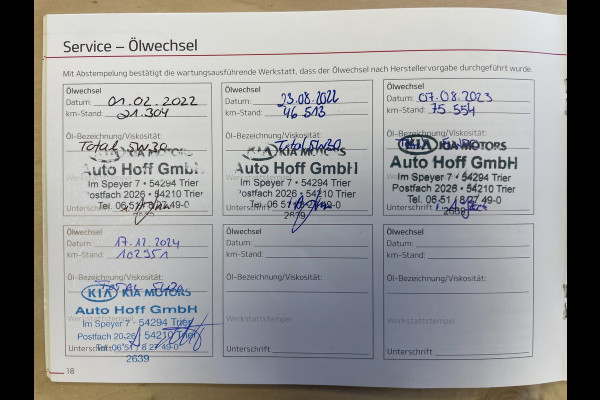 Service – Ölwechsel
Mit Abstempelung bestätigt die wartungsausführende Werkstatt, dass der Ölwechsel nach Herstellervorgabe durchgeführt wurde.
Ölwechsel
Datum: 01.02.2022
km-Stand: 21.304
Öl-Bezeichnung/Viskosität:
Total 5W30
KIA MOTORS
Auto Hoff GmbH
Im Speyer 7 · 54294 Trier
Postfach 2026 · 54210 Trier
Tel. 06 51 / 8 27 49-0
Unterschrift
2639
Ölwechsel
Datum: 23.08.2022
km-Stand: 46 513
Öl-Bezeichnung/Viskosität:
Total 5W30
KIA MOTORS
Auto Hoff GmbH
Im Speyer 7 · 54294 Trier
Postfach 2026 · 54210 Trier
Tel. 06 51 / 8 27 49-0
Unterschrift
2639
Ölwechsel
Datum: 07.08.2023
km-Stand: 75 554
Öl-Bezeichnung/Viskosität:
KIA MOTORS
Auto Hoff GmbH
Im Speyer 7 · 54294 Trier
Postfach 2026 · 54210 Trier
Tel. 06 51 / 8 27 49-0
Unterschrift
2639
Ölwechsel
Datum: 17.12.2024
km-Stand: 102951
Öl-Bezeichnung/Viskosität:
KIA KIA MOTORS
Auto Hoff GmbH
Im Speyer 7 · 54294 Trier
Postfach 20 26 · 54210 Trier
Tel. 06 51 / 8 27 49-0
Unterschrift
2639
Ölwechsel
Datum:
km-Stand:
Öl-Bezeichnung/Viskosität:
Werkstattstempel
Unterschrift
Ölwechsel
Datum:
km-Stand:
Öl-Bezeichnung/Viskosität:
Werkstattstempel
Unterschrift
18